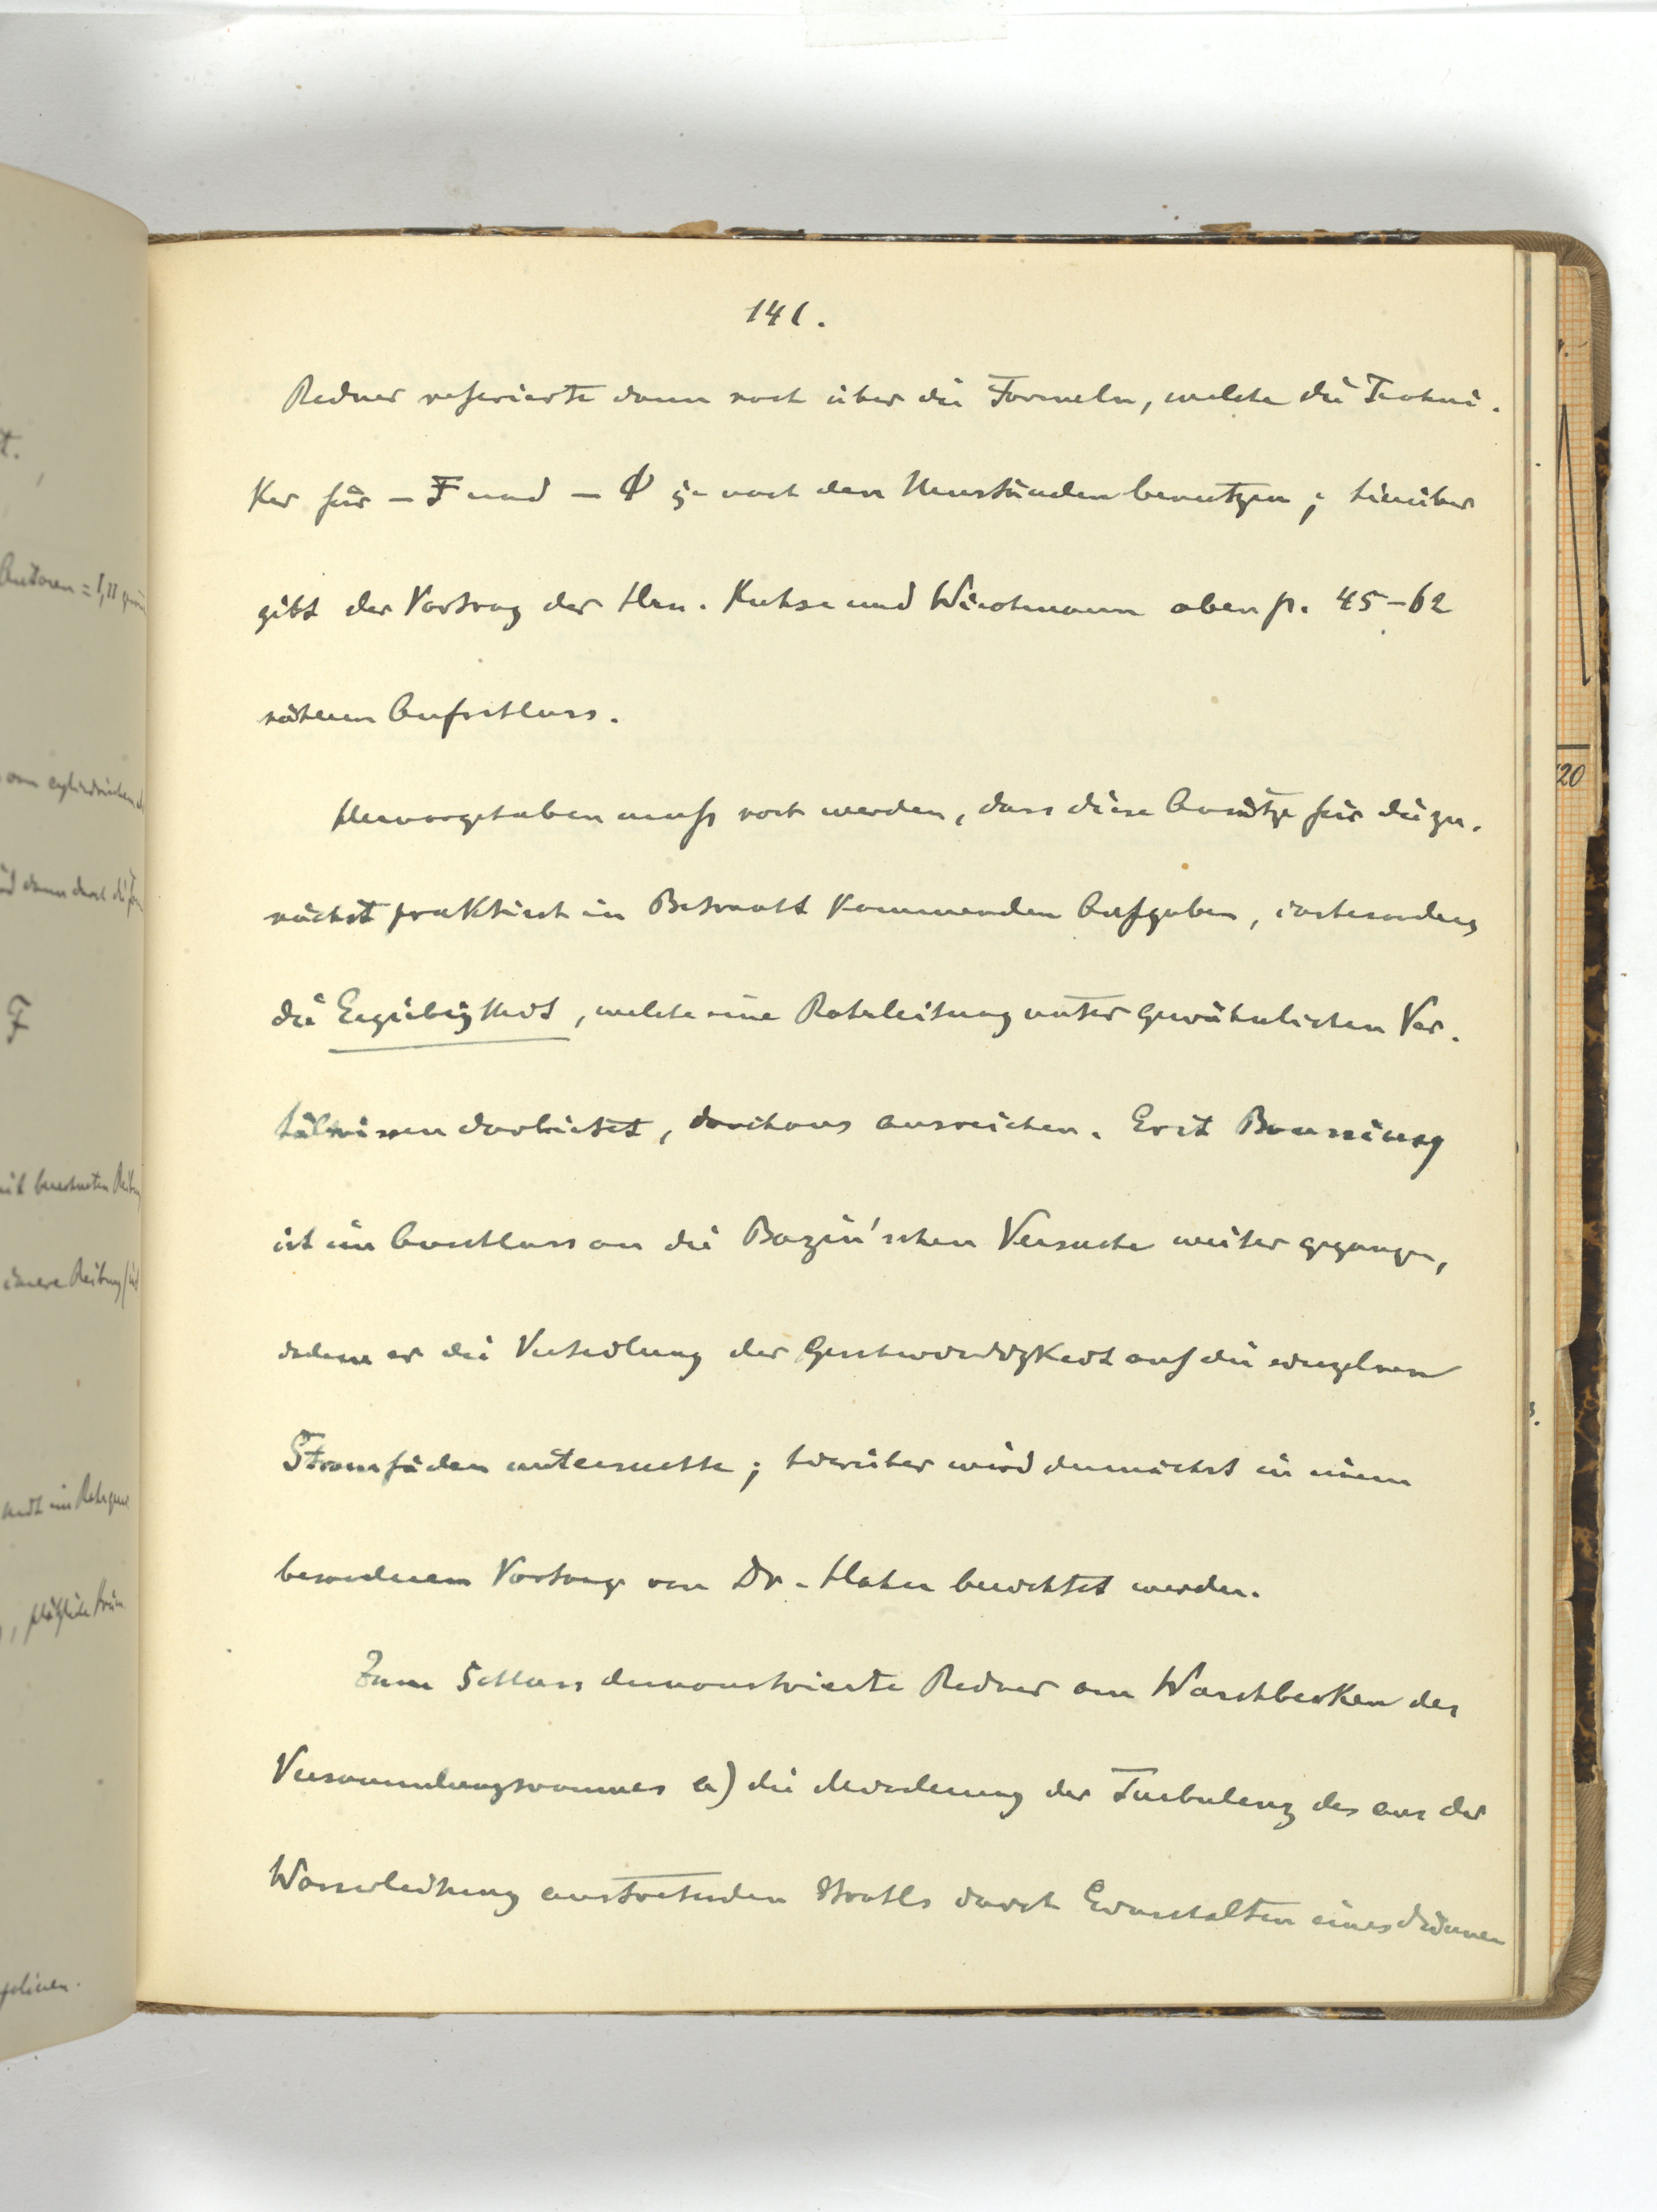 141.
Redner referierte dann noch über die Formeln, welche die Techni-
ker für – F und – Φ je nach den Umständen benutzen; hierüber
gibt der Vortrag der Hrn. Kuhse und Wiechmann oben p. 45–62
näheren Aufschluss.
Hervorgehoben muss noch werden, dass diese Ansätze für die zu-
nächst praktisch in Betracht kommenden Aufgaben, insbesondere
die Ergiebigkeit, welche eine Rohrleitung unter gewöhnlichen Ver-
hältnissen darbietet, durchaus ausreichen. Erst Boussinesq
ist im Anschluss an die Bazin'schen Versuche weiter gegangen,
indem er die Verteilung der Geschwindigkeit auf die einzelnen
Stromfäden untersuchte; hierüber wird demnächst in einem
besonderen Vortrage von Dr. Hahn berichtet werden.
Zum Schluss demonstrierte Redner am Waschbecken des
Versammlungsraumes a) die Minderung der Turbulenz des aus der
Wasserleitung austretenden Strahls durch Einschalten eines dünnen
20
F